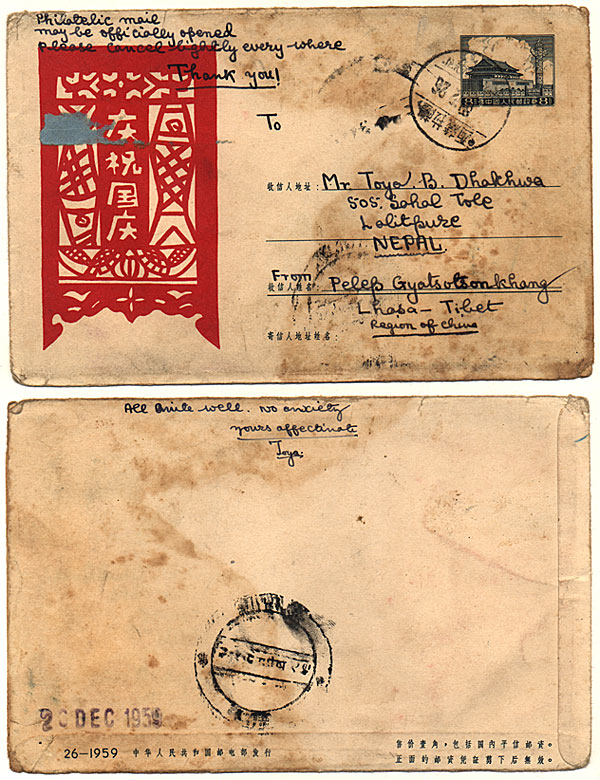 Philatelic mail
may be officially opened
Please cancel lightly every where
Thank you!
庆祝国庆
8 中国人民邮政 8
To
收信人地址:
Mr. Toya. B. Dhakhwa
505. Sahal Tole
Lalitpure
NEPAL
From
收信人姓名:
Pelep Gyatsotsonkhang
Lhasa - Tibet
Region of China
寄信人地址姓名:
All well. No anxiety
yours affectinate
Toya.
DEC 1959
26-1959 中华人民共和国邮电部发行
售价壹角,包括国内平信邮资。
正面的邮资凭证剪下后无效。